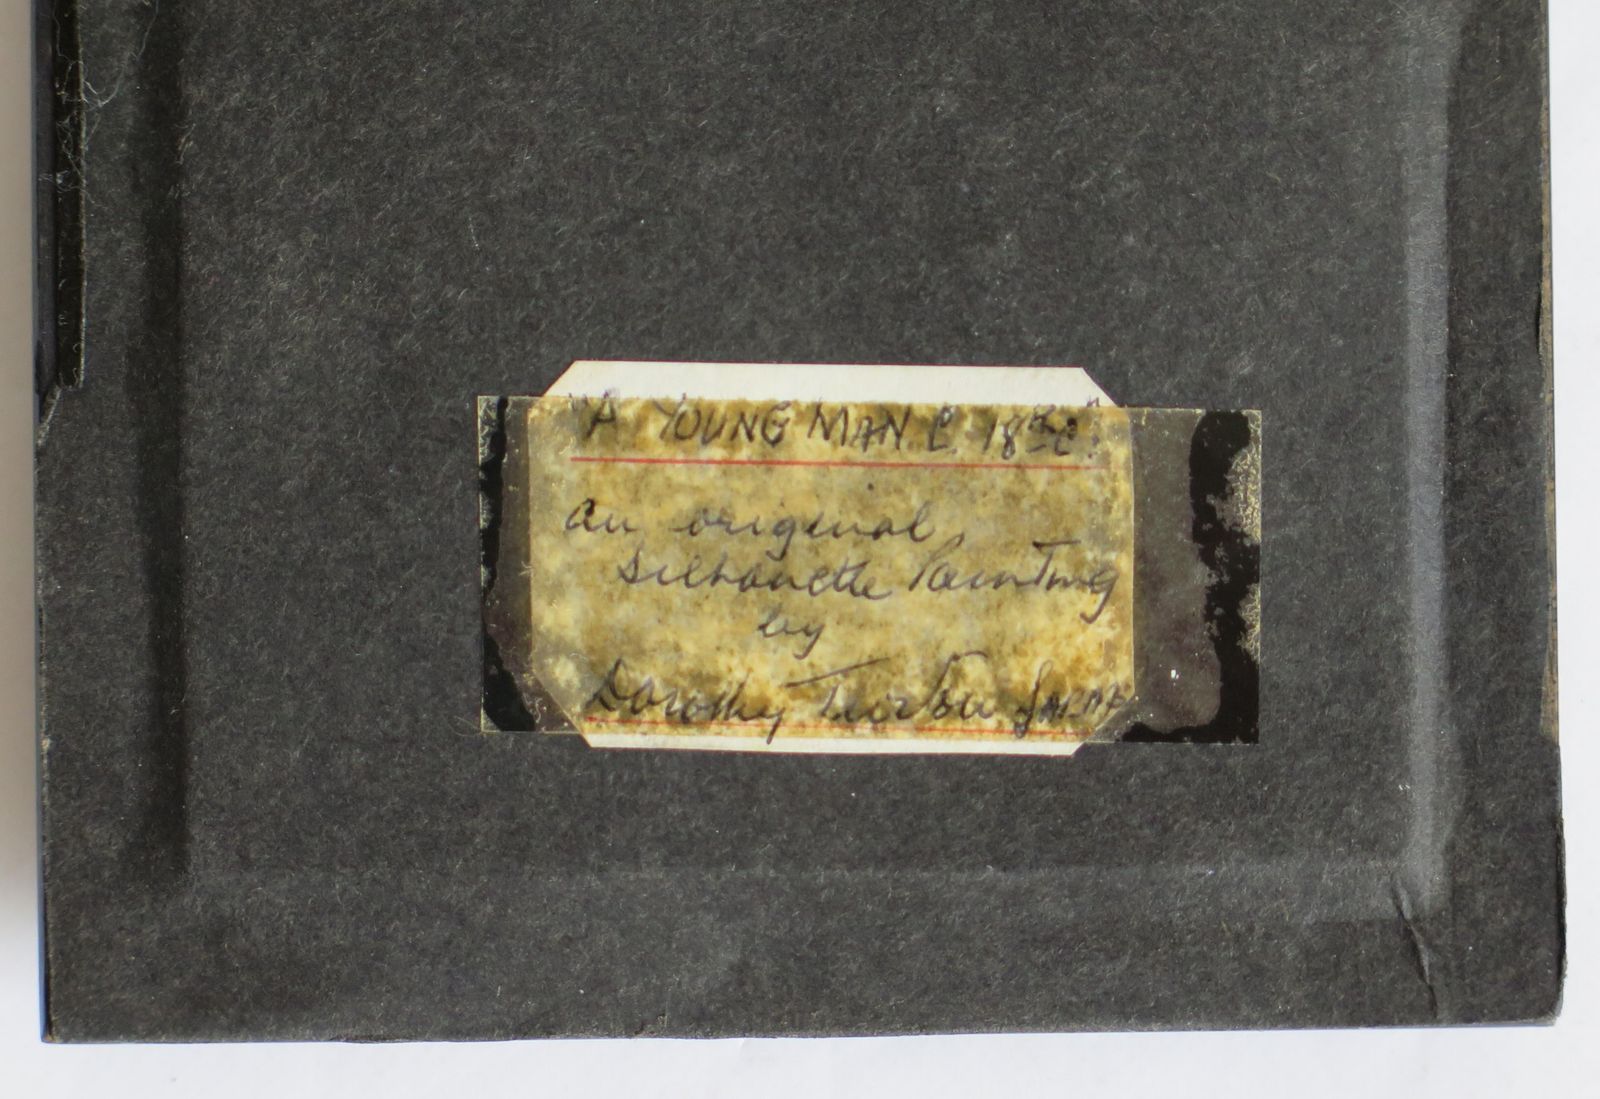 "A YOUNG MAN. C. 1830."
an original
silhouette Painting
by
Dorothy Turton